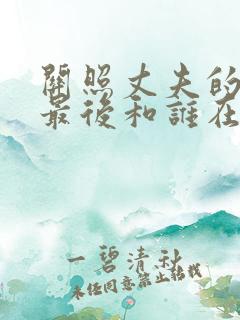 關照丈夫的
最後和誰在
一碧清秋
未經同意禁止轉載